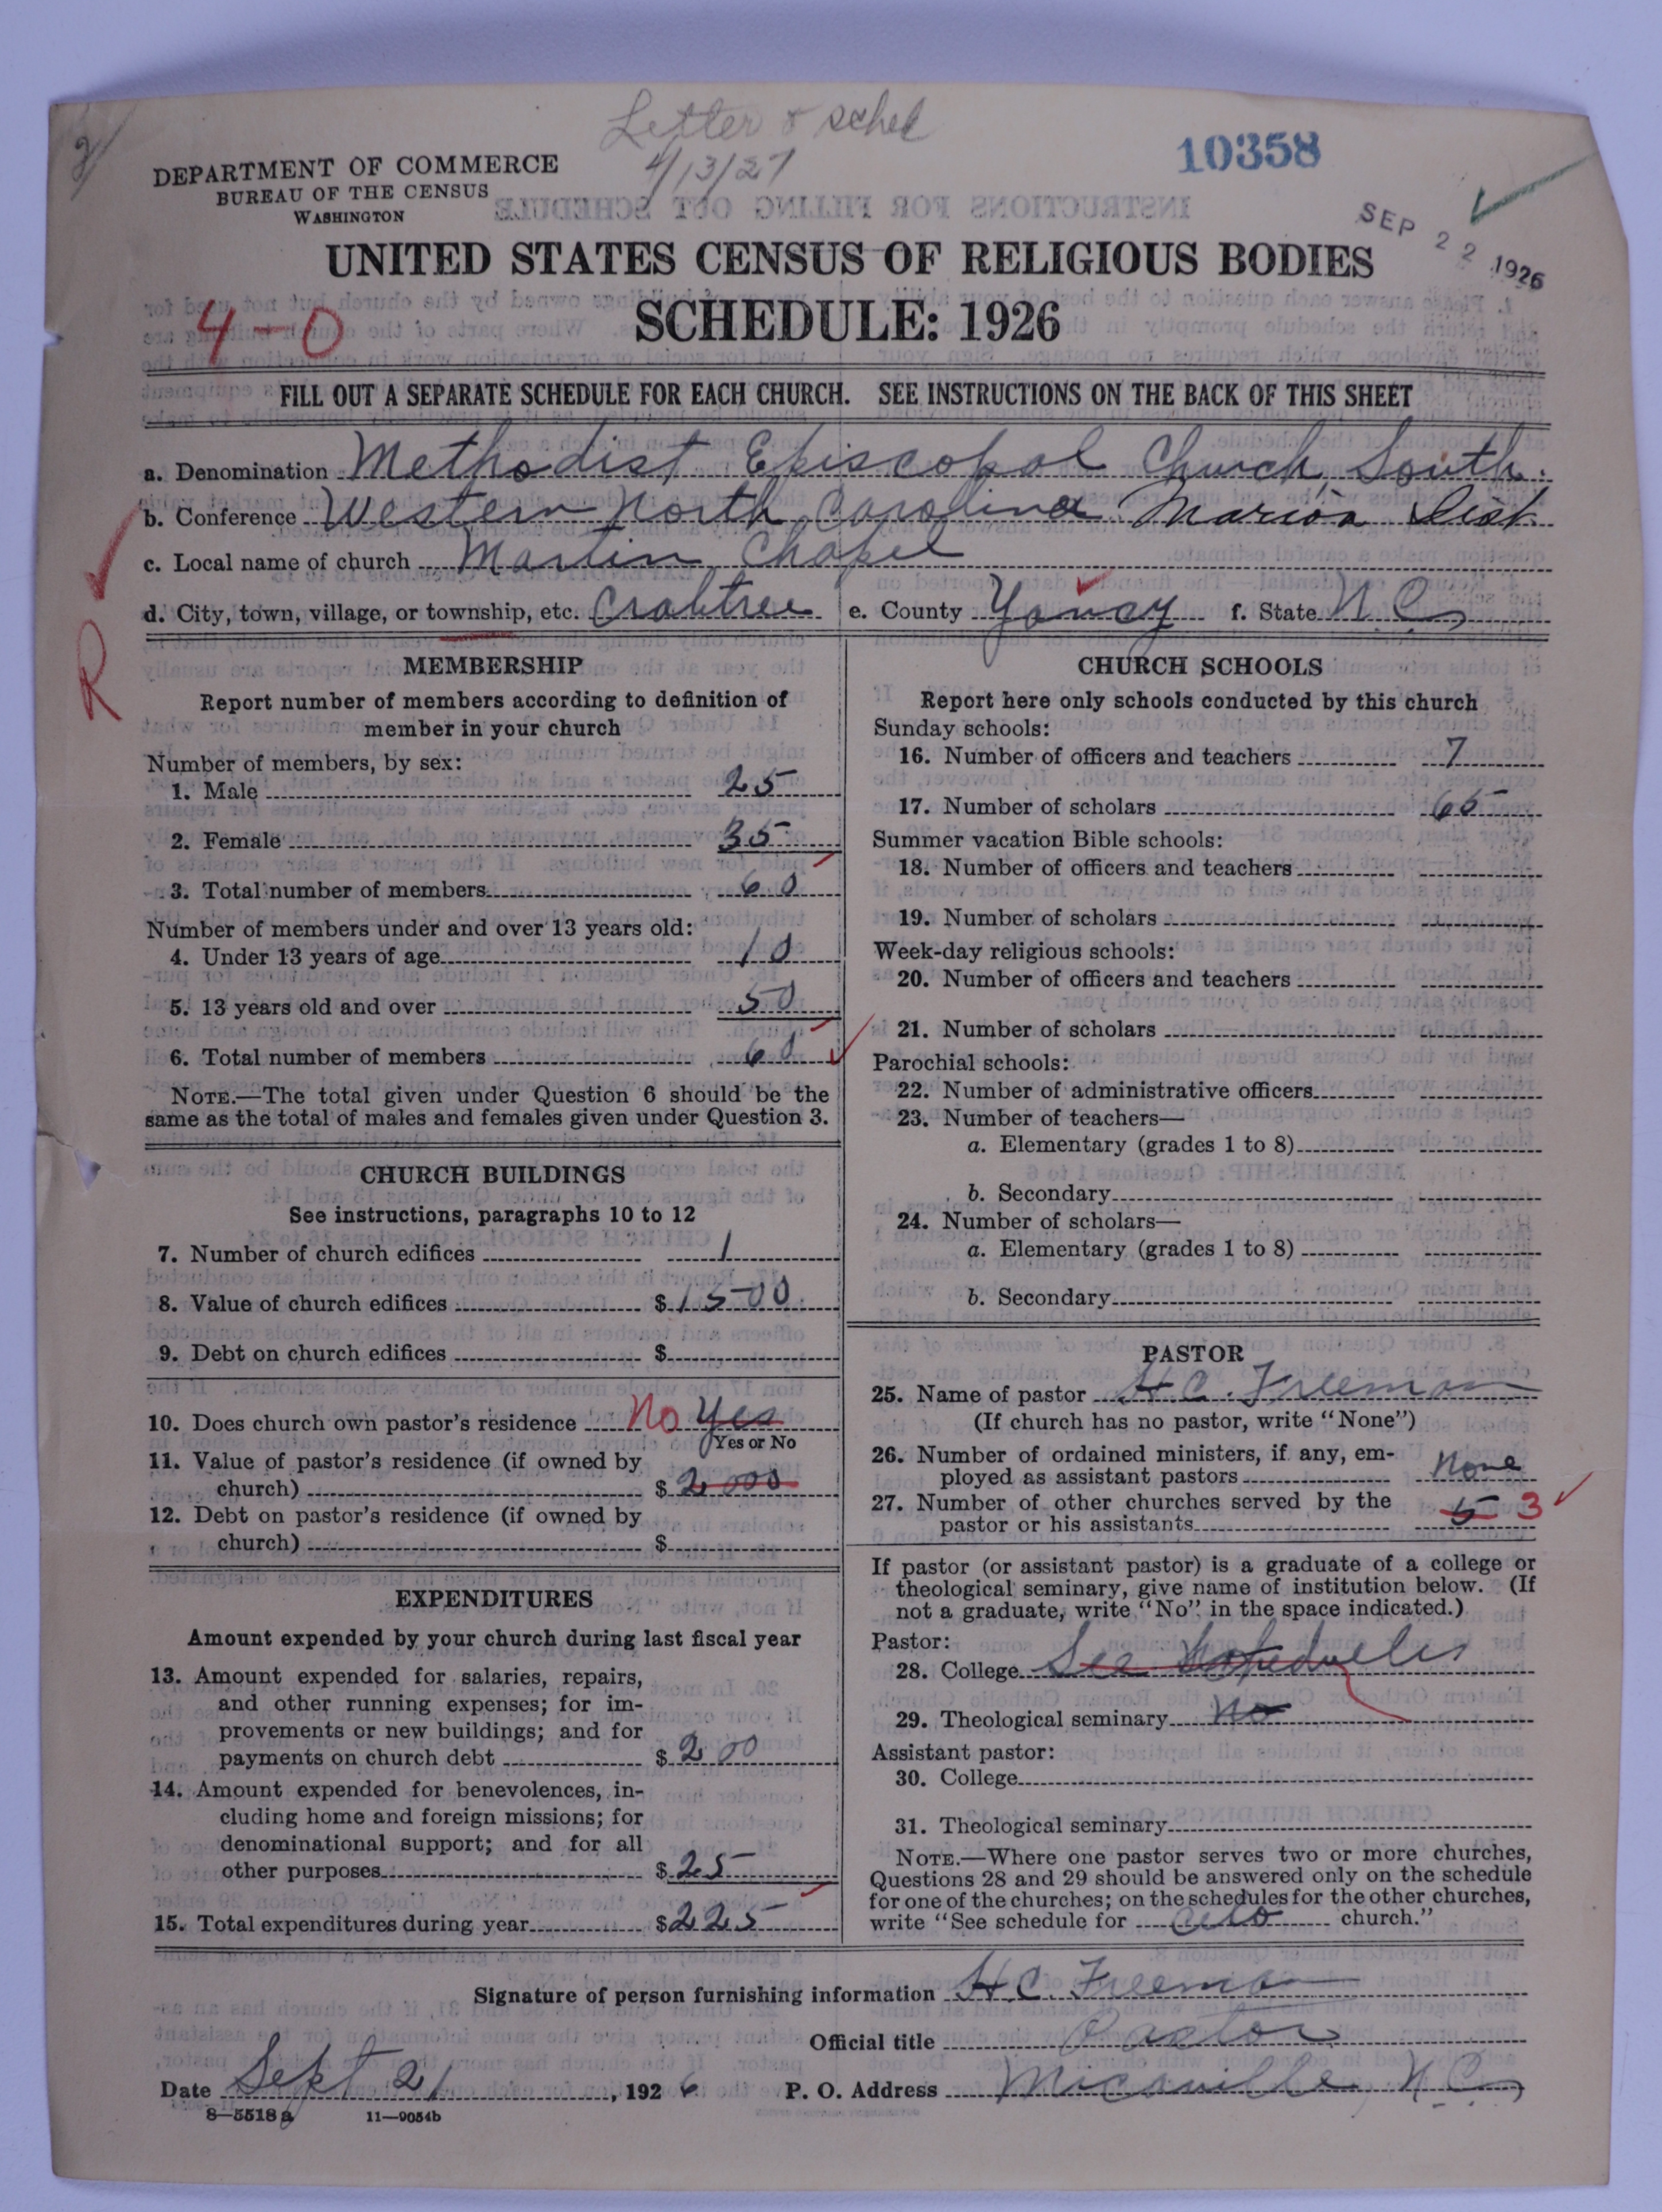 Letter & sched
4/13/27
10358
DEPARTMENT OF COMMERCE
BUREAU OF THE CENSUS
WASHINGTON
SEP 22 1926
UNITED STATES CENSUS OF RELIGIOUS BODIES
4-0
SCHEDULE: 1926
FILL OUT A SEPARATE SCHEDULE FOR EACH CHURCH. SEE INSTRUCTIONS ON THE BACK OF THIS SHEET
a. Denomination Methodist Episcopal Church, South.
b. Conference Western North Carolina Marion Dist
c. Local name of church Martin Chapel
d. City, town, village, or township, etc. Crabtree e. County Yancy f. State N.C.
R
MEMBERSHIP
Report number of members according to definition of
member in your church
Number of members, by sex:
1. Male 25
2. Female 35
3. Total number of members 60
Number of members under and over 13 years old:
4. Under 13 years of age 10
5. 13 years old and over 50
6. Total number of members 60
NOTE.—The total given under Question 6 should be the
same as the total of males and females given under Question 3.
CHURCH BUILDINGS
See instructions, paragraphs 10 to 12
7. Number of church edifices 1
8. Value of church edifices $1500
9. Debt on church edifices $
10. Does church own pastor's residence No Yes
Yes or No
11. Value of pastor's residence (if owned by
church) $2000
12. Debt on pastor's residence (if owned by
church) $
EXPENDITURES
Amount expended by your church during last fiscal year
13. Amount expended for salaries, repairs,
and other running expenses; for im-
provements or new buildings; and for
payments on church debt $200
14. Amount expended for benevolences, in-
cluding home and foreign missions; for
denominational support; and for all
other purposes $25
15. Total expenditures during year $225
CHURCH SCHOOLS
Report here only schools conducted by this church
Sunday schools:
16. Number of officers and teachers 7
17. Number of scholars 65
Summer vacation Bible schools:
18. Number of officers and teachers
19. Number of scholars
Week-day religious schools:
20. Number of officers and teachers
21. Number of scholars
Parochial schools:
22. Number of administrative officers
23. Number of teachers—
a. Elementary (grades 1 to 8)
b. Secondary
24. Number of scholars—
a. Elementary (grades 1 to 8)
b. Secondary
PASTOR
25. Name of pastor H.C. Freeman
(If church has no pastor, write "None")
26. Number of ordained ministers, if any, em-
ployed as assistant pastors None
27. Number of other churches served by the
pastor or his assistants 5 3
If pastor (or assistant pastor) is a graduate of a college or
theological seminary, give name of institution below. (If
not a graduate, write "No" in the space indicated.)
Pastor:
28. College See
29. Theological seminary No
Assistant pastor:
30. College
31. Theological seminary
NOTE.—Where one pastor serves two or more churches,
Questions 28 and 29 should be answered only on the schedule
for one of the churches; on the schedules for the other churches,
write "See schedule for church."
Signature of person furnishing information H.C. Freeman
Official title Pastor
Date Sept 21, 1926 P. O. Address Micaville, N.C.
8—5518 a 11—9054b